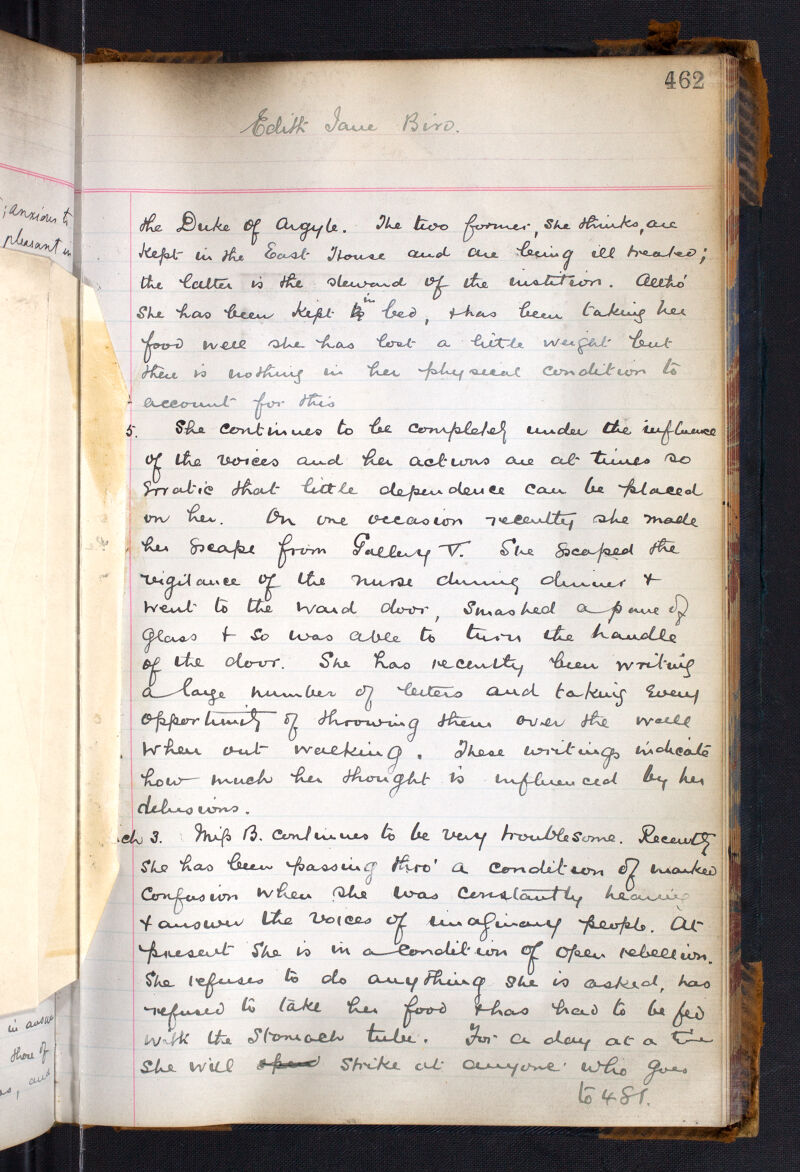 462
Edith Jane Bird.
the Duke of Argyle. The two former, she thinks, are
kept in the East House and are being ill treated;
the latter is the steward of the institution. Altho'
she has been kept in bed, & has been taking her
food well she has lost a little weight but
there is nothing in her physical condition to
account for this
5. She continues to be completely under the influence
of the voices and her actions are at times so
erratic that little dependence can be placed
on her. On one occasion recently she made
her escape from Gallery V. She escaped the
vigilance of the nurse during dinner &
went to the ward door, smashed a pane of
glass & so was able to turn the handle
of the door. She has recently been writing
a large number of letters and taking every
opportunity of throwing them over the wall
when out walking. These writings indicate
how much her thought is influenced by her
delusions.
ch 3. Miss B. continues to be very troublesome. Recently
she has been passing thro' a condition of marked
confusion when she was constantly hearing
& answer the voices of imaginary people. At
present she is in a condition of open rebellion.
She refuses to do anything she is asked, has
refused to take her food & has had to be fed
with the stomach tube. For a day at a time
she will open strike at anyone who goes
to 481.
; anxious to
pleasant in
in answ
those of
as, and